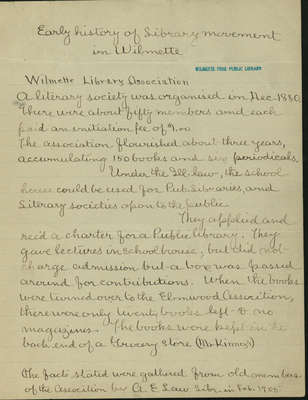 Early history of Library movement
in Wilmette
WILMETTE FREE PUBLIC LIBRARY
Wilmette Library Association
A literary society was organised in Dec. 1880.
There were about fifty members and each
paid an initiation fee of $1.00
The association flourished about three years,
accumulating 150 books and six periodicals.
Under the Ill. law, the school
house could be used for Pub. Libraries and
Literary societies open to the public.
They applied and
rec'd a charter for a Public Library. They
gave lectures in schoolhouse, but did not
charge admission but a box was passed
around for contributions. When the books
were turned over to the Elmwood Association,
there were only twenty books left & no
magazines. The books were kept in the
back end of a Grocery Store (Mr. Kinney's)
The facts stated were gathered from old members
of the Association by A. E. Law Libr. in Feb. 1905.